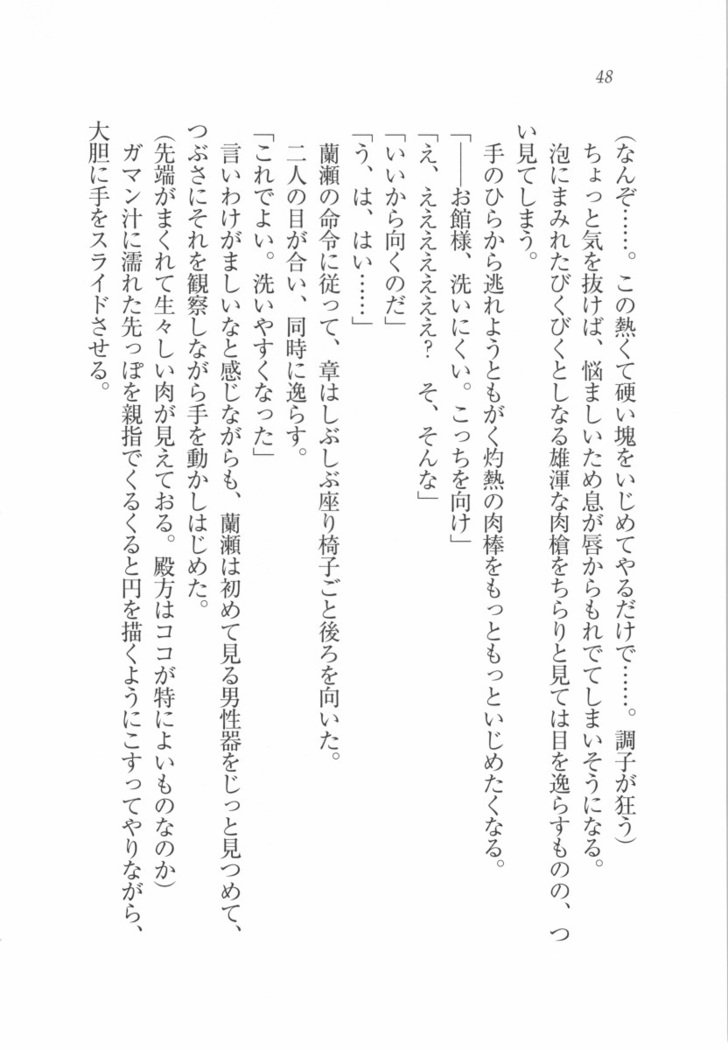 48
(なんぞ……。この熱くて硬い塊をいじめてやるだけで……。調子が狂う)
ちょっと気を抜けば、悩ましいため息が唇からもれでてしまいそうになる。
泡にまみれたびくびくとしなる雄渾な肉槍をちらりと見ては目を逸らすものの、つ
い見てしまう。
手のひらから逃れようともがく灼熱の肉棒をもっともっといじめたくなる。
「――お館様、洗いにくい。こっちを向け」
「え、ええええええ? そ、そんな」
「いいから向くのだ」
「う、は、はい……」
蘭瀬の命令に従って、章はしぶしぶ座り椅子ごと後ろを向いた。
二人の目が合い、同時に逸らす。
「これでよい。洗いやすくなった」
言いわけがましいなと感じながらも、蘭瀬は初めて見る男性器をじっと見つめて、
つぶさにそれを観察しながら手を動かしはじめた。
(先端がまくれて生々しい肉が見えておる。殿方はココが特によいものなのか)
ガマン汁に濡れた先っぽを親指でくるくると円を描くようにこすってやりながら、
大胆に手をスライドさせる。